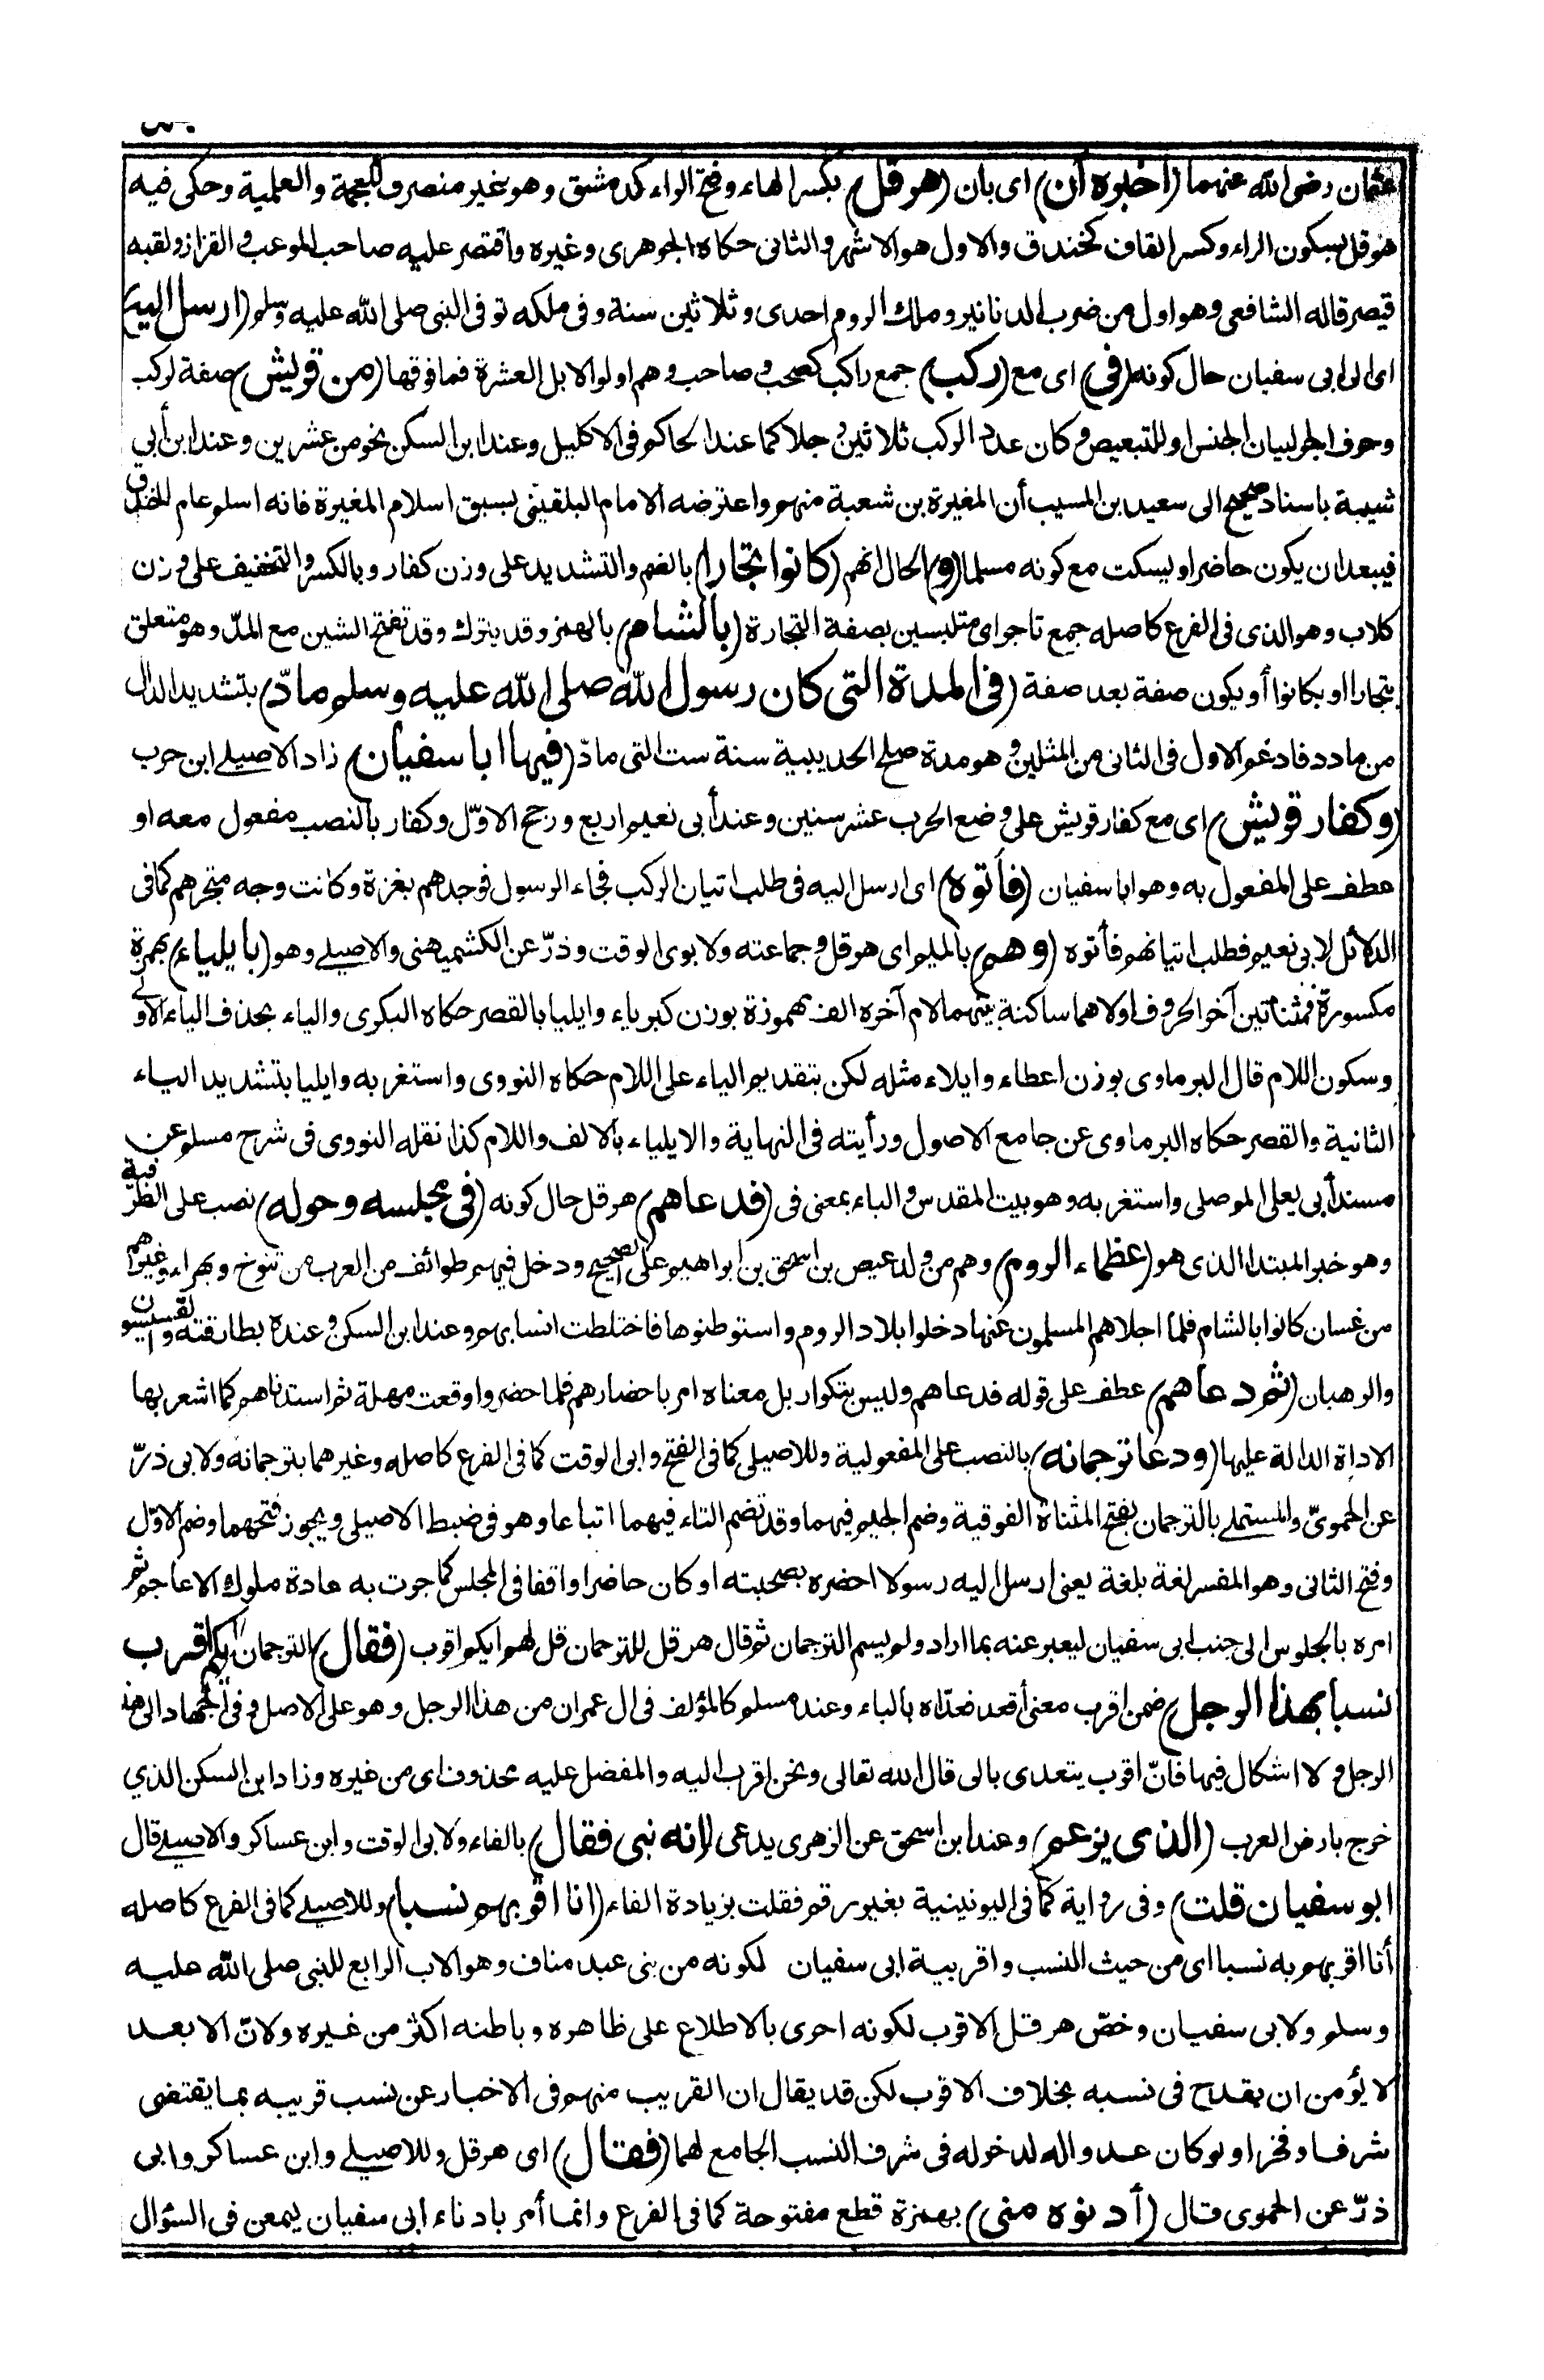 عثمان رضى الله عنهما (اخبره ان) اى بان (هرقل) بكسر الهاء وفتح الراء كدمشق وهو غير منصرف للعجمة والعلمية وحكى فيه
هرقل بسكون الراء وكسر القاف كخندق والاول هو الاشهر والثانى حكاه الجوهرى وغيره واقتصر عليه صاحب الموعب والقزاز ولقبه
قيصر قاله الشافعى وهو اول من ضرب الدنانير وملك الروم احدى وثلاثين سنة وفى ملكه توفى النبى صلى الله عليه وسلم (ارسل اليه)
اى الى ابى سفيان حال كونه (فى) اى مع (ركب) جمع راكب كصحب وصاحب وهم اولو الابل العشرة فما فوقها (من قريش) صفة لركب
وحرف الجر لبيان الجنس او للتبعيض وكان عدد الركب ثلاثين رجلا كما عند الحاكم فى الاكليل وعند ابن السكن نحو من عشرين وعند ابن أبي
شيبة باسناد صحيح الى سعيد بن المسيب أن المغيرة بن شعبة منهم واعترضه الامام البلقينى بسبق اسلام المغيرة فانه اسلم عام الخندق
فيبعد ان يكون حاضرا ويسكت مع كونه مسلما (و) الحال انهم (كانوا تجارا) بالضم والتشديد على وزن كفار وبالكسر والتخفيف على وزن
كلاب وهو الذى فى الفرع كاصله جمع تاجر اى متلبسين بصفة التجارة (بالشام) بالهمز وقد يترك وقد تفتح الشين مع المدّ وهو متعلق
بتجارا او بكانوا أو يكون صفة بعد صفة (فى المدة التى كان رسول الله صلى الله عليه وسلم مادّ) بتشديد الدال
من مادد فادغم الاول فى الثانى من المثلين وهو مدة صلح الحديبية سنة ست التى مادّ (فيها ابا سفيان) زاد الاصيلے ابن حرب
(وكفار قريش) اى مع كفار قريش على وضع الحرب عشر سنين وعند أبى نعيم اربع ورجح الاوّل وكفار بالنصب مفعول معه او
عطف على المفعول به وهو ابا سفيان (فأتوه) اى ارسل اليه فى طلب اتيان الركب فجاء الرسول فوجدهم بغزة وكانت وجه متجرهم كما فى
الدلائل لابى نعيم فطلب اتيانهم فأتوه (وهم) بالميم اى هرقل وجماعته ولابوى الوقت وذرّ عن الكشميهنى والاصيلے وهو (بايلياء) بهمزة
مكسورة فمثناتين آخر الحروف اولاهما ساكنة بينهما لام آخره الف مهموزة بوزن كبرياء وايليا بالقصر حكاه البكرى والياء بحذف الياء الاولى
وسكون اللام قال البرماوى بوزن اعطاء وايلاء مثله لكن بتقديم الياء على اللام حكاه النووى واستغربه وايليا بتشديد الياء
الثانية والقصر حكاه البرماوى عن جامع الاصول ورأيته فى النهاية والايلياء بالالف واللام كذا نقله النووى فى شرح مسلم عن
مسند أبى يعلى الموصلى واستغربه وهو بيت المقدس والباء بمعنى فى (فدعاهم) هرقل حال كونه (فى مجلسه وحوله) نصب على الظرفية
وهو خبر المبتدا الذى هو (عظماء الروم) وهم من ولد عيص بن اسحق بن ابراهيم على الصحيح ودخل فيهم طوائف من العرب من تنوخ وبهراء وغيرهم
من غسان كانوا بالشام فلما اجلاهم المسلمون عنها دخلوا بلاد الروم واستوطنوها فاختلطت انسابهم وعند ابن السكن وعنده بطارقته والقسيسون
والرهبان (ثم دعاهم) عطف على قوله فدعاهم وليس بتكرار بل معناه امر باحضارهم فلما حضروا وقعت مهلة ثم استدناهم كما اشعر بها
الاداة الدالة عليها (ودعا ترجمانه) بالنصب على المفعولية وللاصيلى كما فى الفتح وابى الوقت كما فى الفرع كاصله وغيرهما بترجمانه ولابى ذرّ
عن الحموىّ والمستملے بالترجمان بفتح المثناة الفوقية وضم الجيم فيهما وقد تضم التاء فيهما اتباعا وهو فى ضبط الاصيلى ويجوز فتحهما وضم الاوّل
وفتح الثانى وهو المفسر لغة بلغة يعنى ارسل اليه رسولا احضره بصحبته او كان حاضرا واقفا فى المجلس كما جرت به عادة ملوك الاعاجم ثم
امره بالجلوس الى جنب ابى سفيان ليعبر عنه بما اراد ولم يسم الترجمان ثم قال هرقل للترجمان قل لهم ايكم اقرب (فقال) الترجمان (ايكم اقرب
نسبا بهذا الرجل) ضمن اقرب معنى أقعد فعدّاه بالباء وعند مسلم كالمؤلف فى ال عمران من هذا الرجل وهو على الاصل وفى الجهاد الى هذا
الرجل ولا اشكال فيها فانّ اقرب يتعدى بالى قال الله تعالى ونحن اقرب اليه والمفضل عليه محذوف اى من غيره وزاد ابن السكن الذي
خرج بارض العرب (الذى يزعم) وعند ابن اسحق عن الزهرى يدعى (انه نبى فقال) بالفاء ولابى الوقت وابن عساكر والاصيلے قال
ابو سفيان قلت) وفى رواية كما فى اليونينية بغير رقم فقلت بزيادة الفاء (انا اقربهم نسبا) وللاصيلے كما فى الفرع كاصله
أنا اقربهم به نسبا اى من حيث النسب واقربية ابى سفيان لكونه من بنى عبد مناف وهو الاب الرابع للنبى صلى الله عليه
وسلم ولابى سفيان وخصّ هرقل الاقرب لكونه احرى بالاطلاع على ظاهره وباطنه اكثر من غيره ولانّ الابعد
لا يؤمن ان يقدح فى نسبه بخلاف الاقرب لكن قد يقال ان القريب منهم فى الاخبار عن نسب قريبه بما يقتضى
شرفا وفخرا ولو كان عدوا له لدخوله فى شرف النسب الجامع لهما (فقال) اى هرقل وللاصيلے وابن عساكر وابى
ذرّ عن الحموى قال (أدنوه منى) بهمزة قطع مفتوحة كما فى الفرع وانما أمر بادناء ابى سفيان يمعن فى السؤال